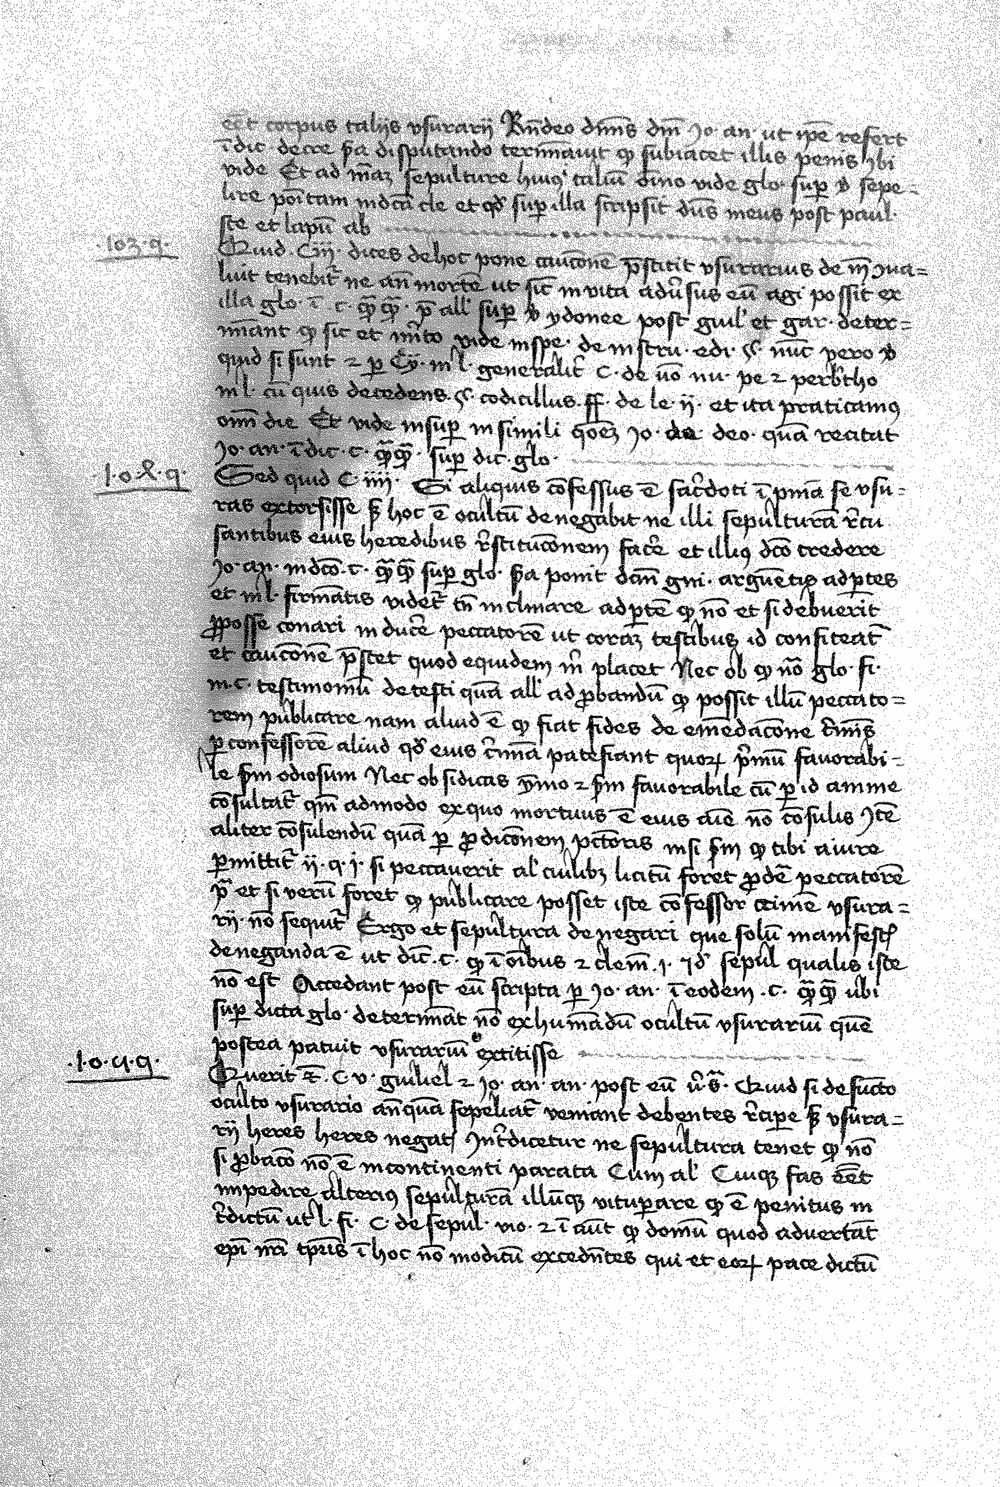 eēt corpus taliis vsurarii Rn̄deo dm̄s dm̄ Jo· an· ut ip̄e refert
ī dic̄ decre p̄a disputando termīauit ꝙ subiacet illis penis ibi
vide Et ad m̄az sepulture huiꝰ taliū oīno vide glo· suꝑ v̓ sepe=
lire poītam in dc̄a cle et qd̓ suꝑ illa scripsit dūs meus post paul·
ste et lapū ab
·103·q·
Quid ·Ciij· dices de hoc pone cauc̄onē p̄stitit vsurarius de m̄ ꝯua=
luit tenebit᷑ ne an̄ mortē ut sic̄ in vita adūsus eū agi possit ex
illa glo· ī ·c· qq̄ qq̄· p̄ all̓ suꝑ v̓ ydonee post guil̓ et gar· deter=
mīant ꝙ sic et mīto vide in spe· de instru· edi· §· nūc vero v̓
quid si sunt ⁊ ꝑ Cy· in l· generalit᷑ C· de nō nu· pe ⁊ per b̓tho
in l· cū quis decedens §· codicillus ff· de le ij· et ita praticamꝰ
omī die Et vide insuꝑ in simili qōez Jo· de deo· quā recitat
Jo· an· ī dic̄·c· qq̄ qq̄· suꝑ dic̄· glo·
·1·0·ꝝ·q·
Sed quid C· iiij· Si aliquis cōfessus ē sac̄doti ī pn̄ia se vsu=
ras extorsisse s̓ hoc ē ocultū denegabit ne illi sepulturā r̄cu
santibus eius heredibus r̄stituc̄onem fac̄e et illiꝰ dc̄o credere
Jo· an· in dc̄o·c· qq̄ qq̄ suꝑ glo· p̄a ponit dām gn̄i· argūetis ad ꝑtes
et in l· firmātis videt᷑ tn̄ inclinare ad ꝑtē ꝙ nō et si debuerit
ꝓ posse conari inducēe peccatorē ut coraz testibus id confiteat᷑
et cauc̄onē p̄stet quod equidem m̄ placet Nec ob ꝙ nō glo· fi·
in·c· testimoniū de testi quā all̓ ad ꝓbandū ꝙ possit illū peccato=
rem publicare nam aliud ē ꝙ fiat fides de emēdac̄one c̄m̄is
ꝑ confessorē aliud qd̓ eius c̄im̄a patefiant quoꝝ p̄mū fauorabi=
le s̄m odiosum Nec ob si dicas ymo ⁊ s̄m fauorabile cū ꝑ id anime
cōsultat᷑ qm̄ admodo ex quo mortuus ē eius aīe nō cōsulis Itē
aliter cōsulendū quā ꝑ ꝓdic̄onem pc̄toris nisi s̄m ꝙ tibi a iure
ꝑmittit᷑ ij·q·j· si peccauerit al̓ ciuilibz licitū foret ꝓdē peccatorē
p̄ et si verū foret ꝙ publicare posset iste cōfessor crimē vsura=
rij· nō sequit᷑ Ergo et sepultura denegari que solū manifesti
deneganda ē ut dic̄·c· ꝙ ī oībus ⁊ clem̄·j· ⁊ d̓ sepul̓ qualis iste
nō est Accedant post eū scripta ꝑ Jo· an· ī eodem ·c· qq̄ qq̄ ubi
suꝑ dicta glo· determīat nō exhumādū ocultū vsurariū quē
postea patuit vsurariū extitisse
·1·0·q·q·
Querit᷑ C· v· guiliel̓ ⁊ Jo· an· an· post eū Quid si defucto
oculto vsurario an̄quā sepeliat᷑ veniant debentes r̄cipe s̓ vsura=
rij heres heres negat ꝯnt̓dicetur ne sepultura tenet ꝙ nō
si ꝓbac̄o nō ē in continenti parata Cum al̓ Cuiqꝫ fas eēt
impedire alteriꝰ sepulturā illūqꝫ vituꝑare ꝙ ē penitus in
t̓dictū ut l· fi· C· de sepul̓· vio· ⁊ ī aut̄ ꝙ domū quod aduertāt
epī nr̄i tp̄ris ī hoc nō modicū excedn̄tes qui et eoꝝ pace dictū